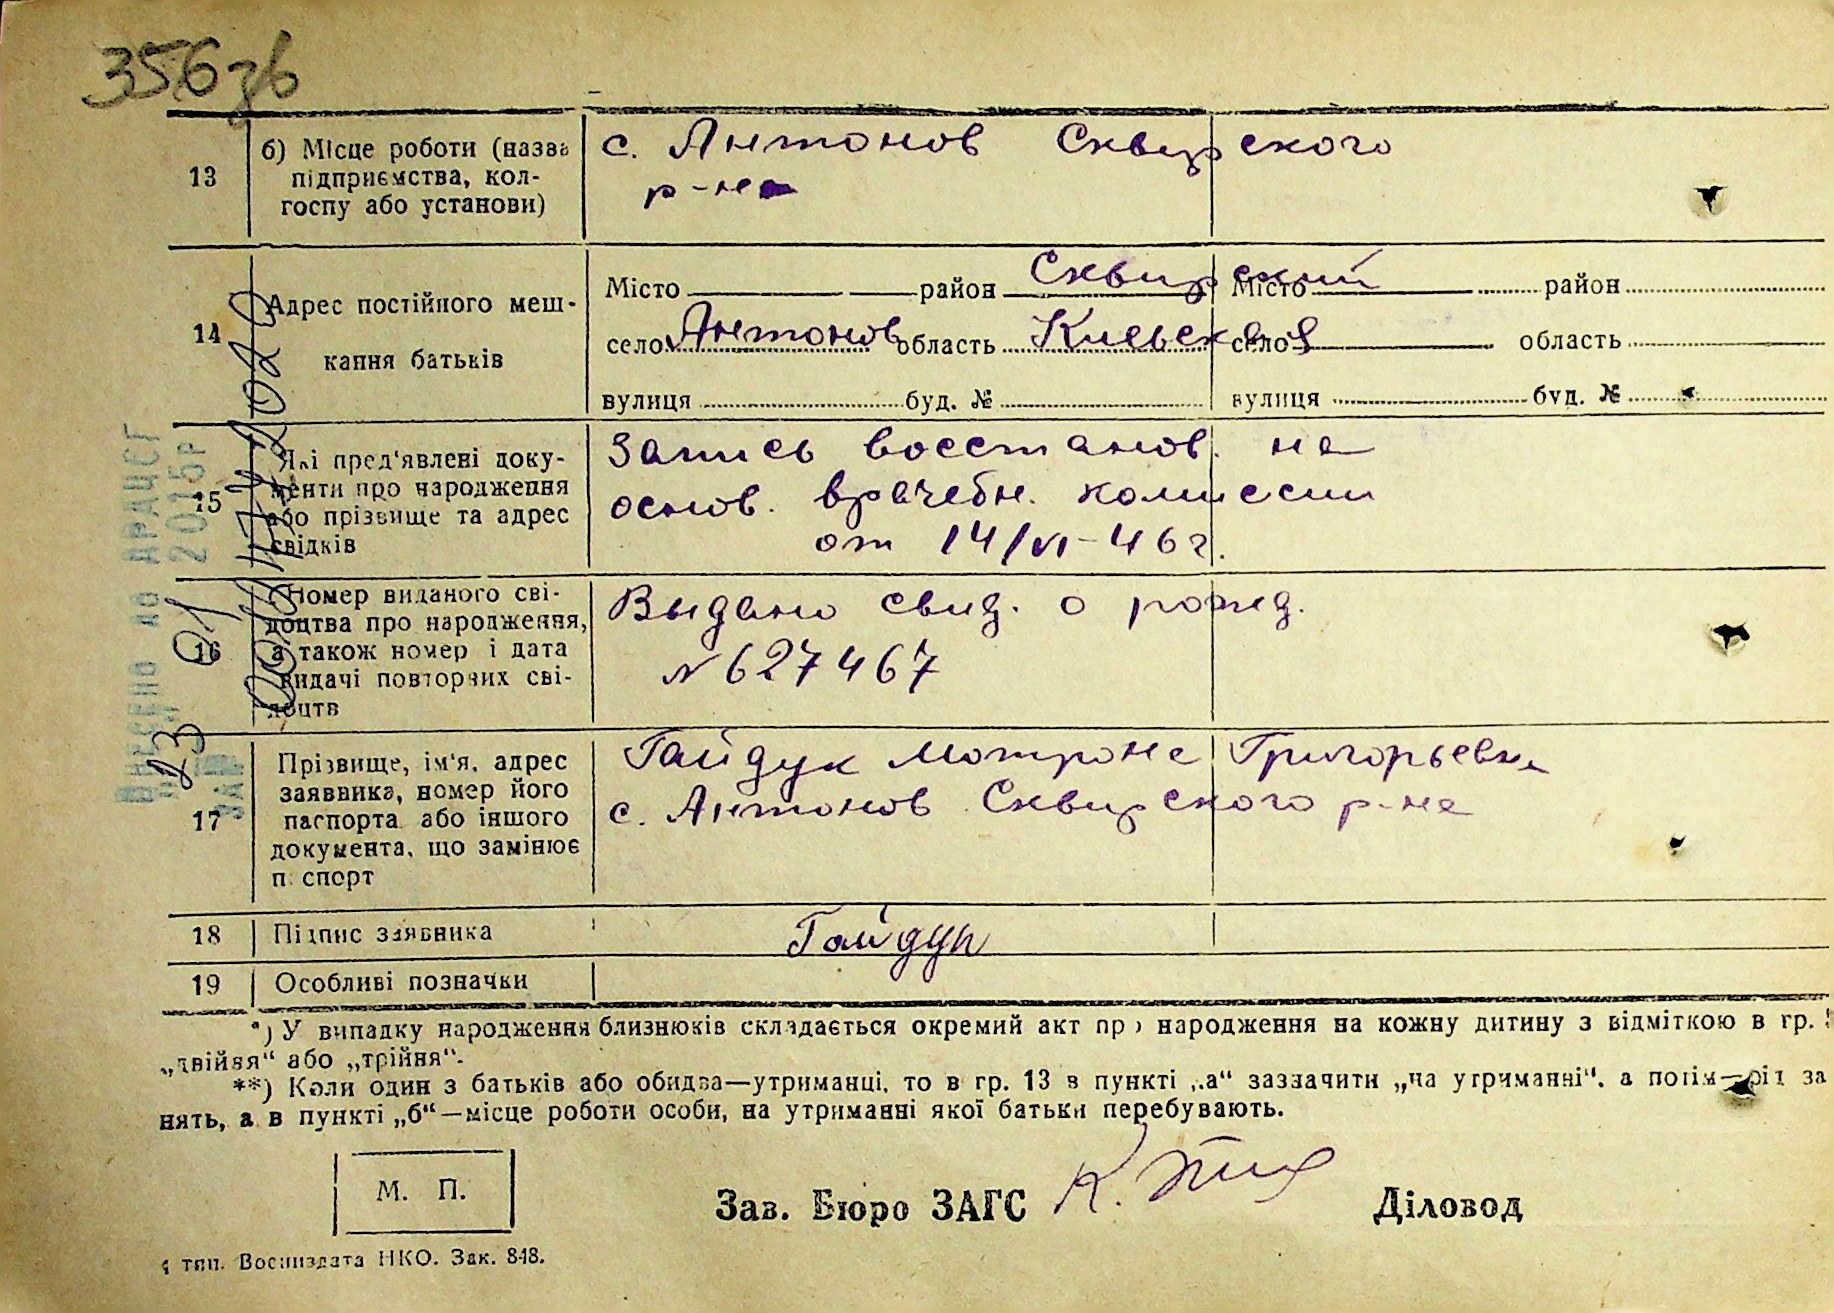 356зв
13
б) Місце роботи (назва
підприємства, кол-
госпу або установи)
с. Антонов Сквирского
р-на
14
Адрес постійного меш-
кання батьків
Місто район Сквирский Місто район
село Антонов область Киевская село область
вулиця буд. № вулиця буд. №
15
Які пред'явлені доку-
менти про народження
або прізвище та адрес
свідків
Запись восстанов. на
основ. врачебн. комиссии
от 14/VI-46г.
16
Номер виданого сві-
доцтва про народження,
а також номер і дата
видачі повторних сві-
доцтв
Выдано свид. о рожд.
№627467
17
Прізвище, ім'я, адрес
заявника, номер його
паспорта або іншого
документа, що замінює
паспорт
Гайдук Мотрона Григорьевна
с. Антонов Сквирского р-на
18 Підпис заявника Гайдук
19 Особливі позначки
Внесено до ДРАЦСГ
23 01 2015р
*) У випадку народження близнюків складається окремий акт про народження на кожну дитину з відміткою в гр.
„двійня“ або „трійня“.
**) Коли один з батьків або обидва—утриманці, то в гр. 13 в пункті „а“ зазначити „на утриманні“, а потім—рід за
нять, а в пункті „б“—місце роботи особи, на утриманні якої батьки перебувають.
М. П.
Зав. Бюро ЗАГС Діловод
тип. Воениздата НКО. Зак. 848.